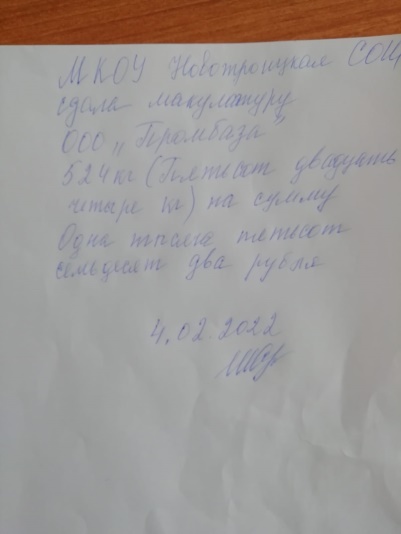 МКОУ Новотроицкая СОШ
сдала макулатуру
ООО „Промбаза"
524кг (Пятесот двадцать
четыре кг) на сумму
Одна тысяча пятесот
семьдесят два рубля
4.02 2022